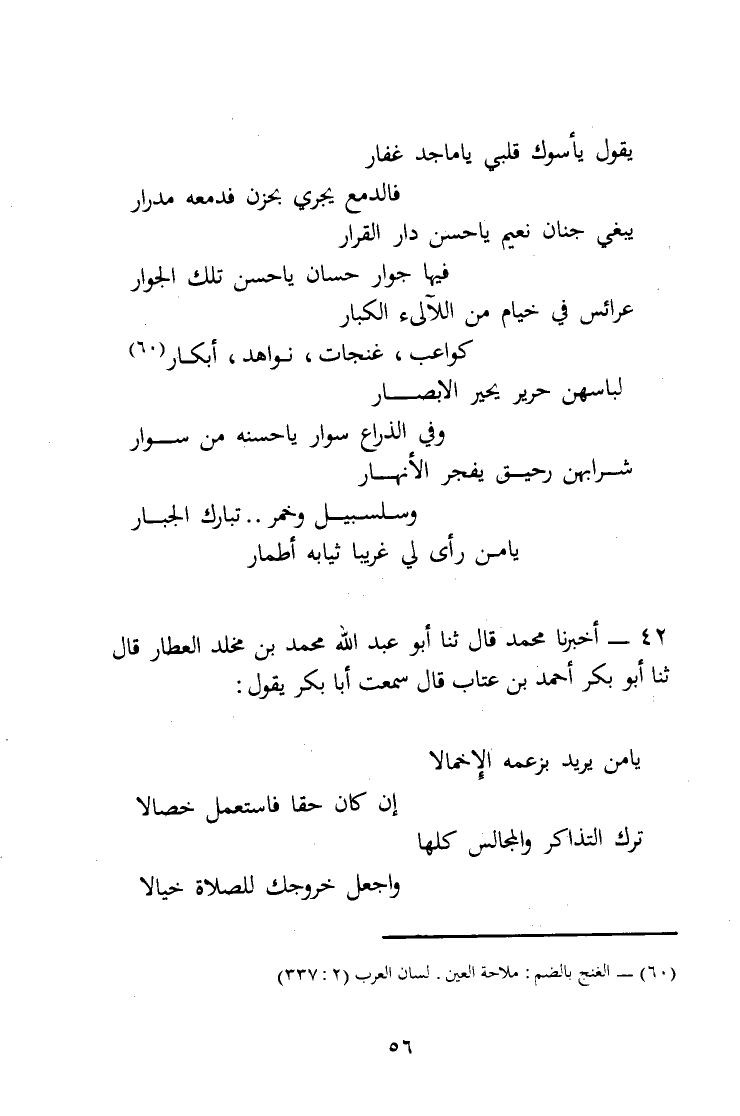 يقول يأسوك قلبي ياماجد غفار
فالدمع يجري بحزن فدمعه مدرار
يبغي جنان نعيم ياحسن دار القرار
فيها جوار حسان ياحسن تلك الجوار
عرائس في خيام من اللآلىء الكبار
كواعب ، غنجات ، نواهد ، أبكار (٦٠)
لباسهن حرير يحير الابصار
وفي الذراع سوار ياحسنه من سوار
شرابهن رحيق يفجر الأنهار
وسلسبيل وخمر .. تبارك الجبار
يامن رأى لي غريبا ثيابه أطمار
٤٢ ــ أخبرنا محمد قال ثنا أبو عبد الله محمد بن مخلد العطار قال
ثنا أبو بكر أحمد بن عتاب قال سمعت أبا بكر يقول :
يامن يريد بزعمه الإخمالا
إن كان حقا فاستعمل خصالا
ترك التذاكر والمجالس كلها
واجعل خروجك للصلاة خيالا
(٦٠) ــ الغنج بالضم : ملاحة العين . لسان العرب (٢ : ٣٣٧)
٥٦